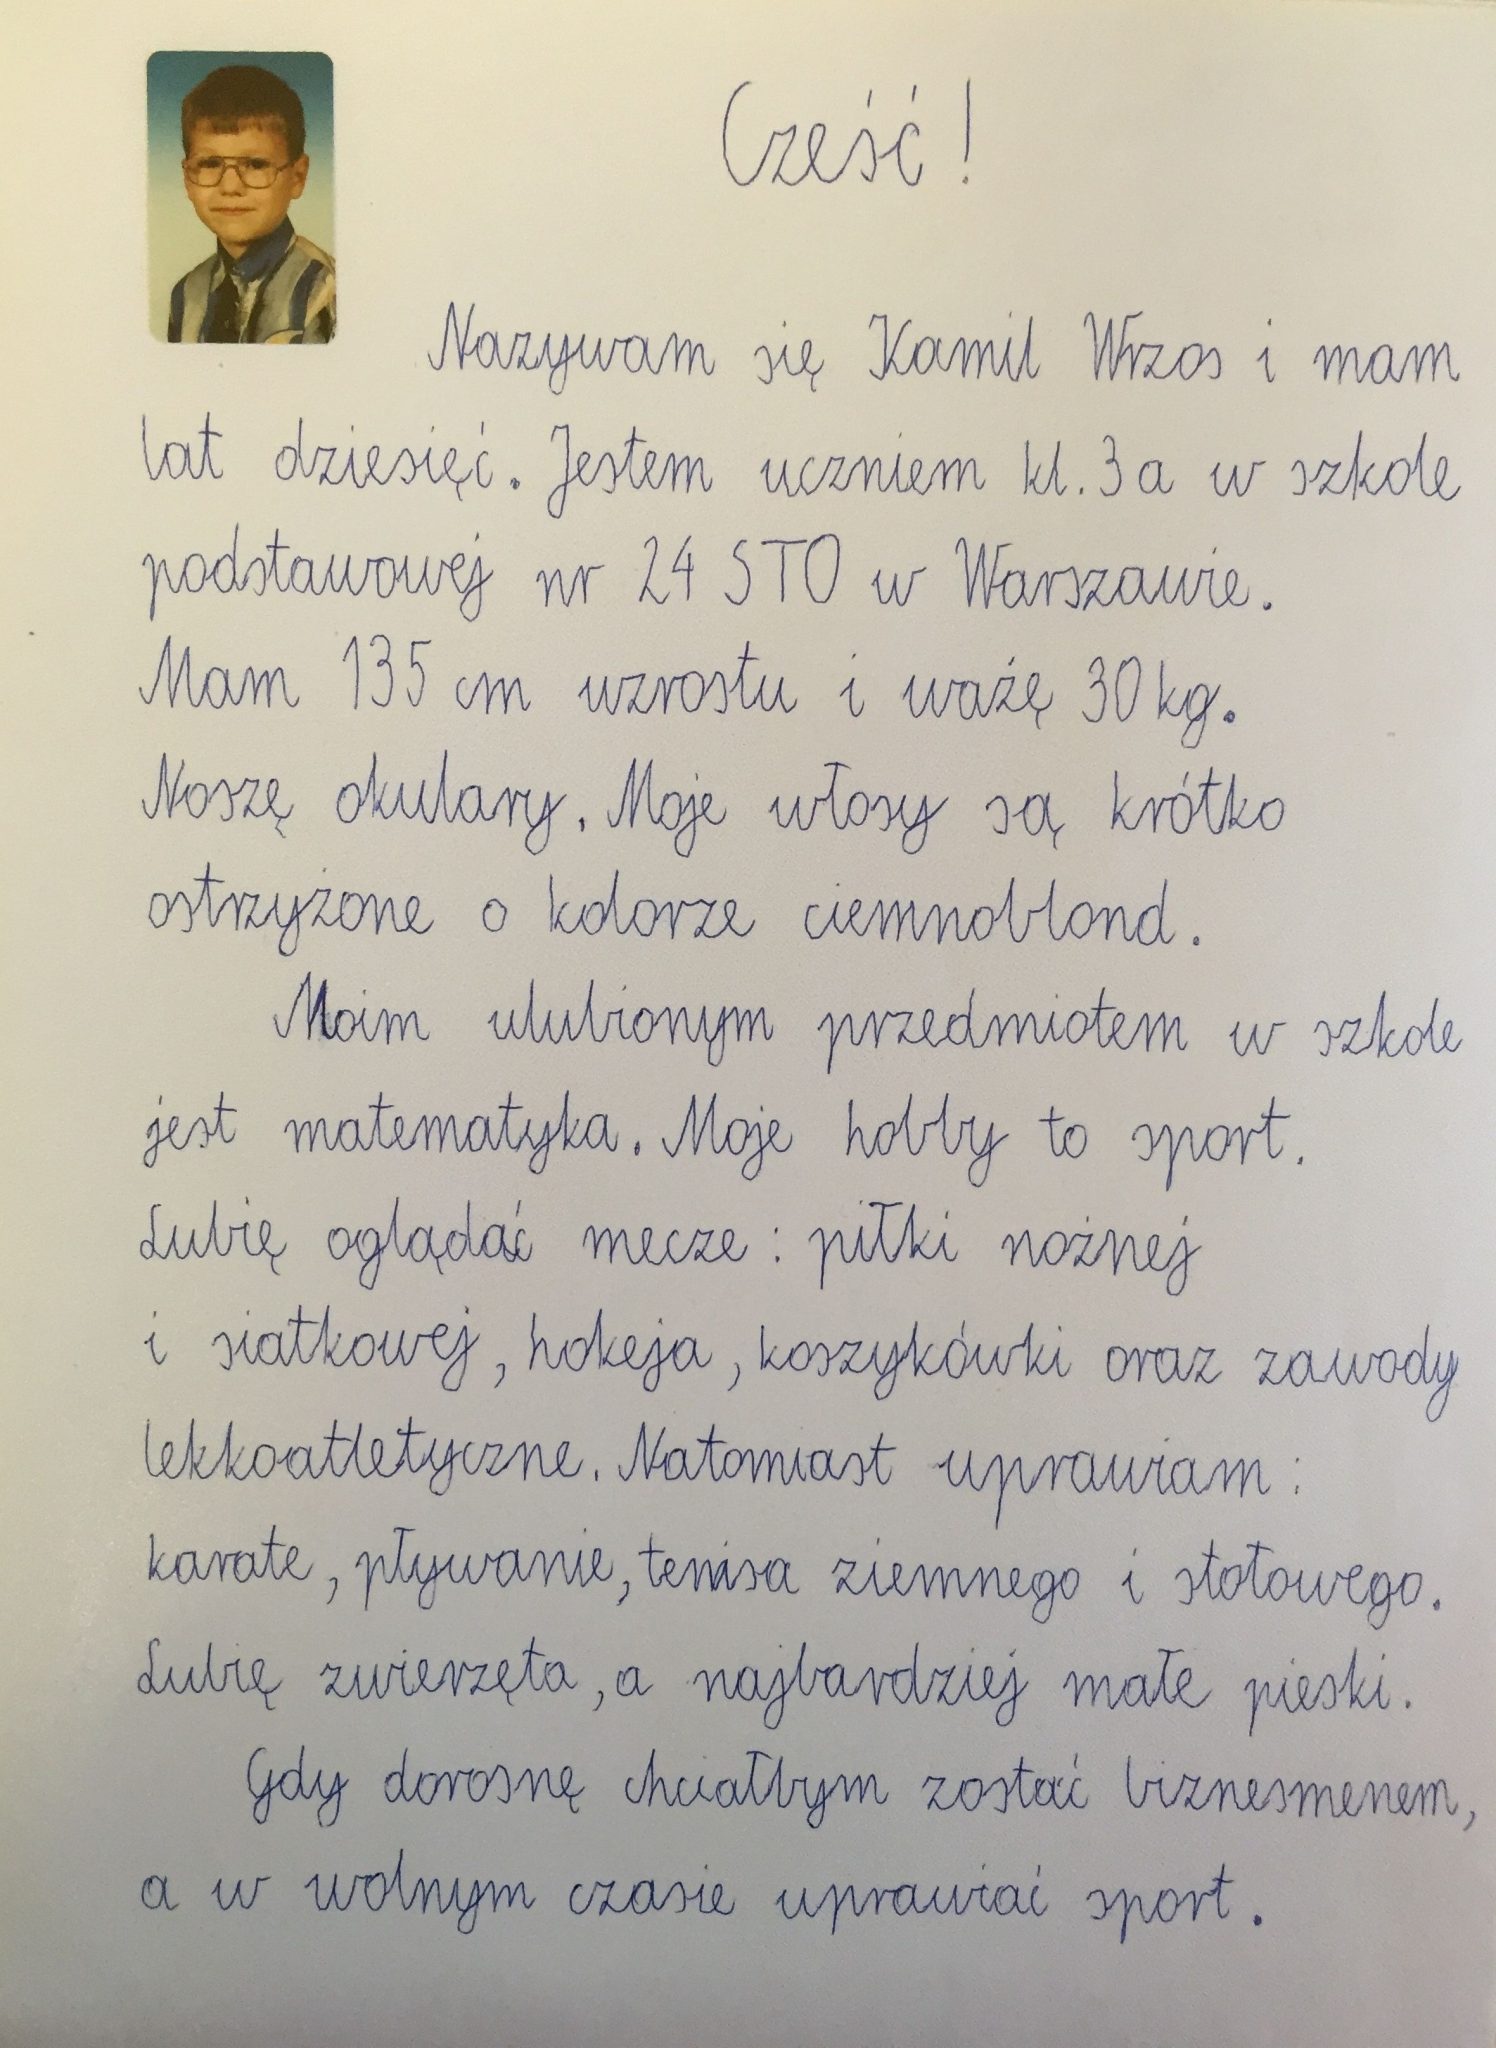 Cześć!
Nazywam się Kamil Wrzos i mam
lat dziesięć. Jestem uczniem kl. 3a w szkole
podstawowej nr 24 STO w Warszawie.
Mam 135 cm wzrostu i ważę 30 kg.
Noszę okulary. Moje włosy są krótko
ostrzyżone o kolorze ciemnoblond.
Moim ulubionym przedmiotem w szkole
jest matematyka. Moje hobby to sport.
Lubię oglądać mecze: piłki nożnej
i siatkowej, hokeja, koszykówki oraz zawody
lekkoatletyczne. Natomiast uprawiam:
karate, pływanie, tenisa ziemnego i stołowego.
Lubię zwierzęta, a najbardziej małe pieski.
Gdy dorosnę chciałbym zostać biznesmenem,
a w wolnym czasie uprawiać sport.